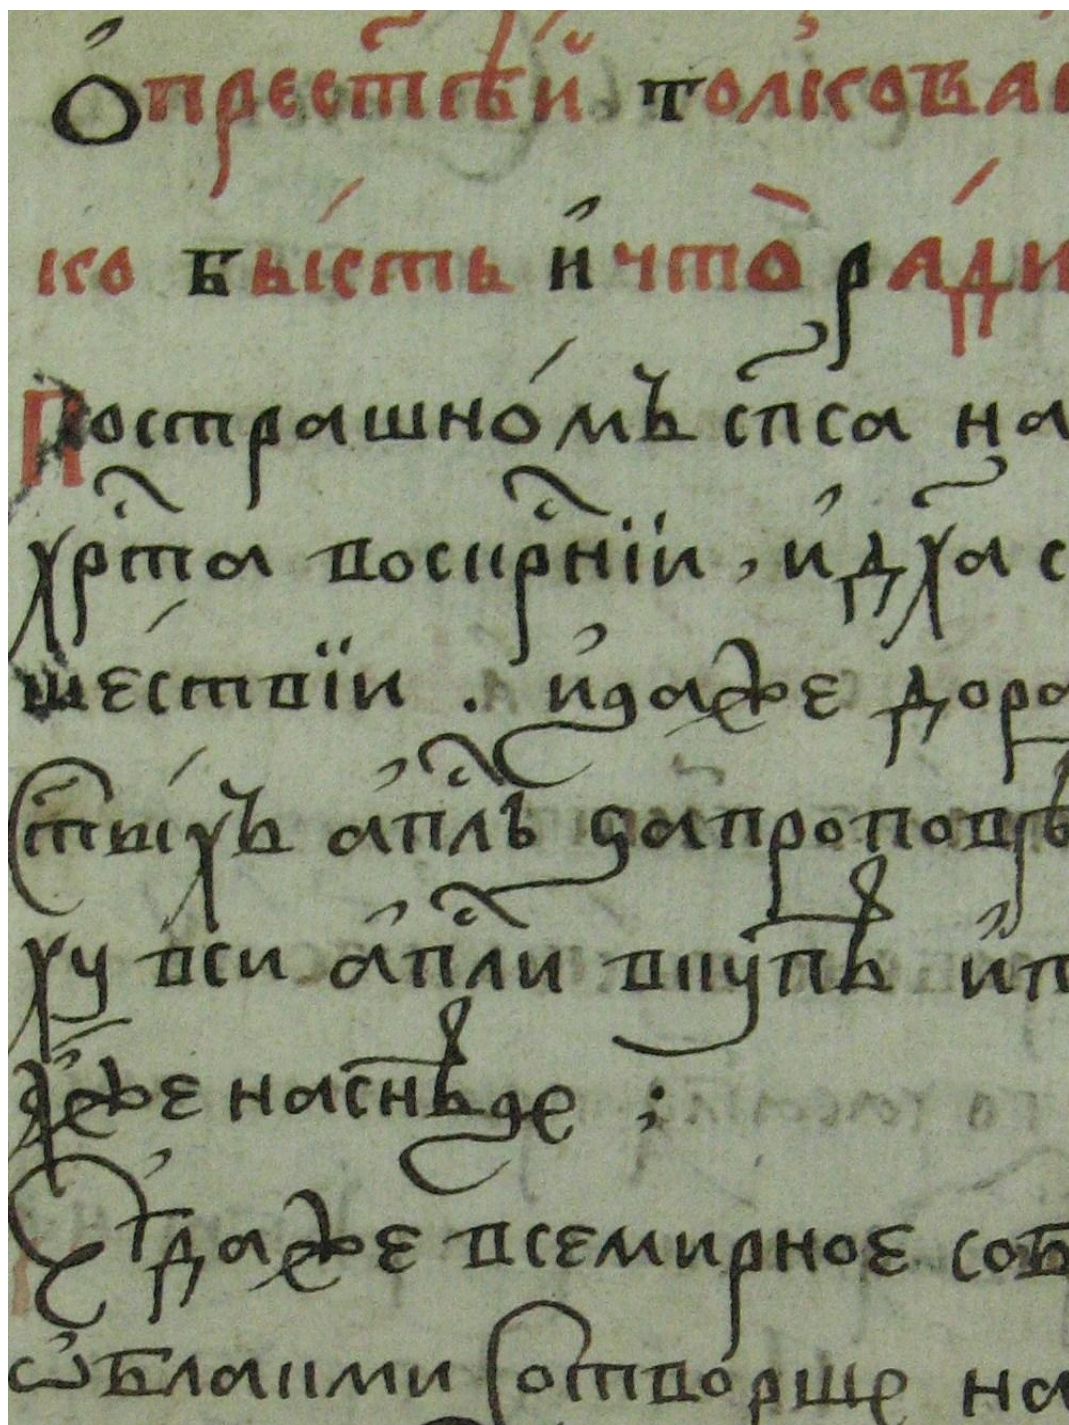 Ѻ҆ прест҃ѣй толкова
ко бы́сть и҆ что̀ ра́ди
Пострашно́мъ сп҃са на
хрⷭ҇та воскрⷭ҇нїи, и҆ дх҃а с
ше́ствїи . и҆даже до ра
ст҃ы́хъ а҆пⷭ҇лъ да проповѣ
ху вси а҆пⷭ҇ли вкупѣ и҆ п
да́же наснѣде ;
Є҆гдаже всемирное соб
ѡ҆блаками сотворше на